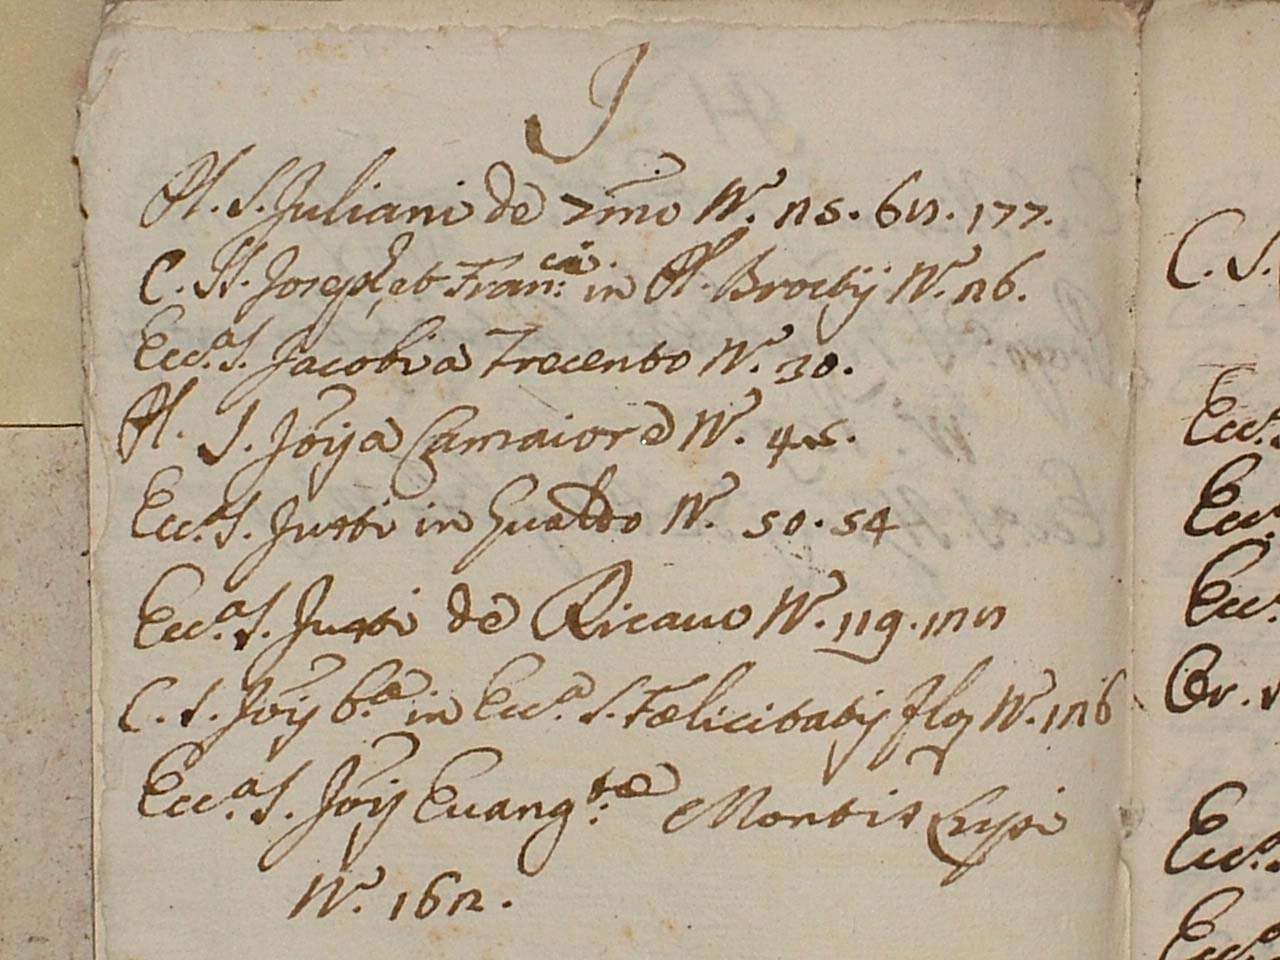 J
Pl. S. Juliani de 7mo N.° 25. 62. 177.
C. SS. Joseph et Fran:ci in Pl. Broccij N.° 26.
Ecc.a S. Jacobi a Trecento N.° 30.
Pl. S. Jõis a Camaiore N.° 45.
Ecc.a S. Justi in Gualdo N.° 50. 54
Ecc.a S. Justi de Ricavo N.° 119. 122
C. S. Jõis b.a in Ecc.a S. Fœlicitatis flor N.° 126
Ecc.a S. Jõis Evang.tæ Montis Lupi
N.° 162.
C. S.
Ecc.
Ecc.
Ecc.
Or. S
Ecc.
Ecc.